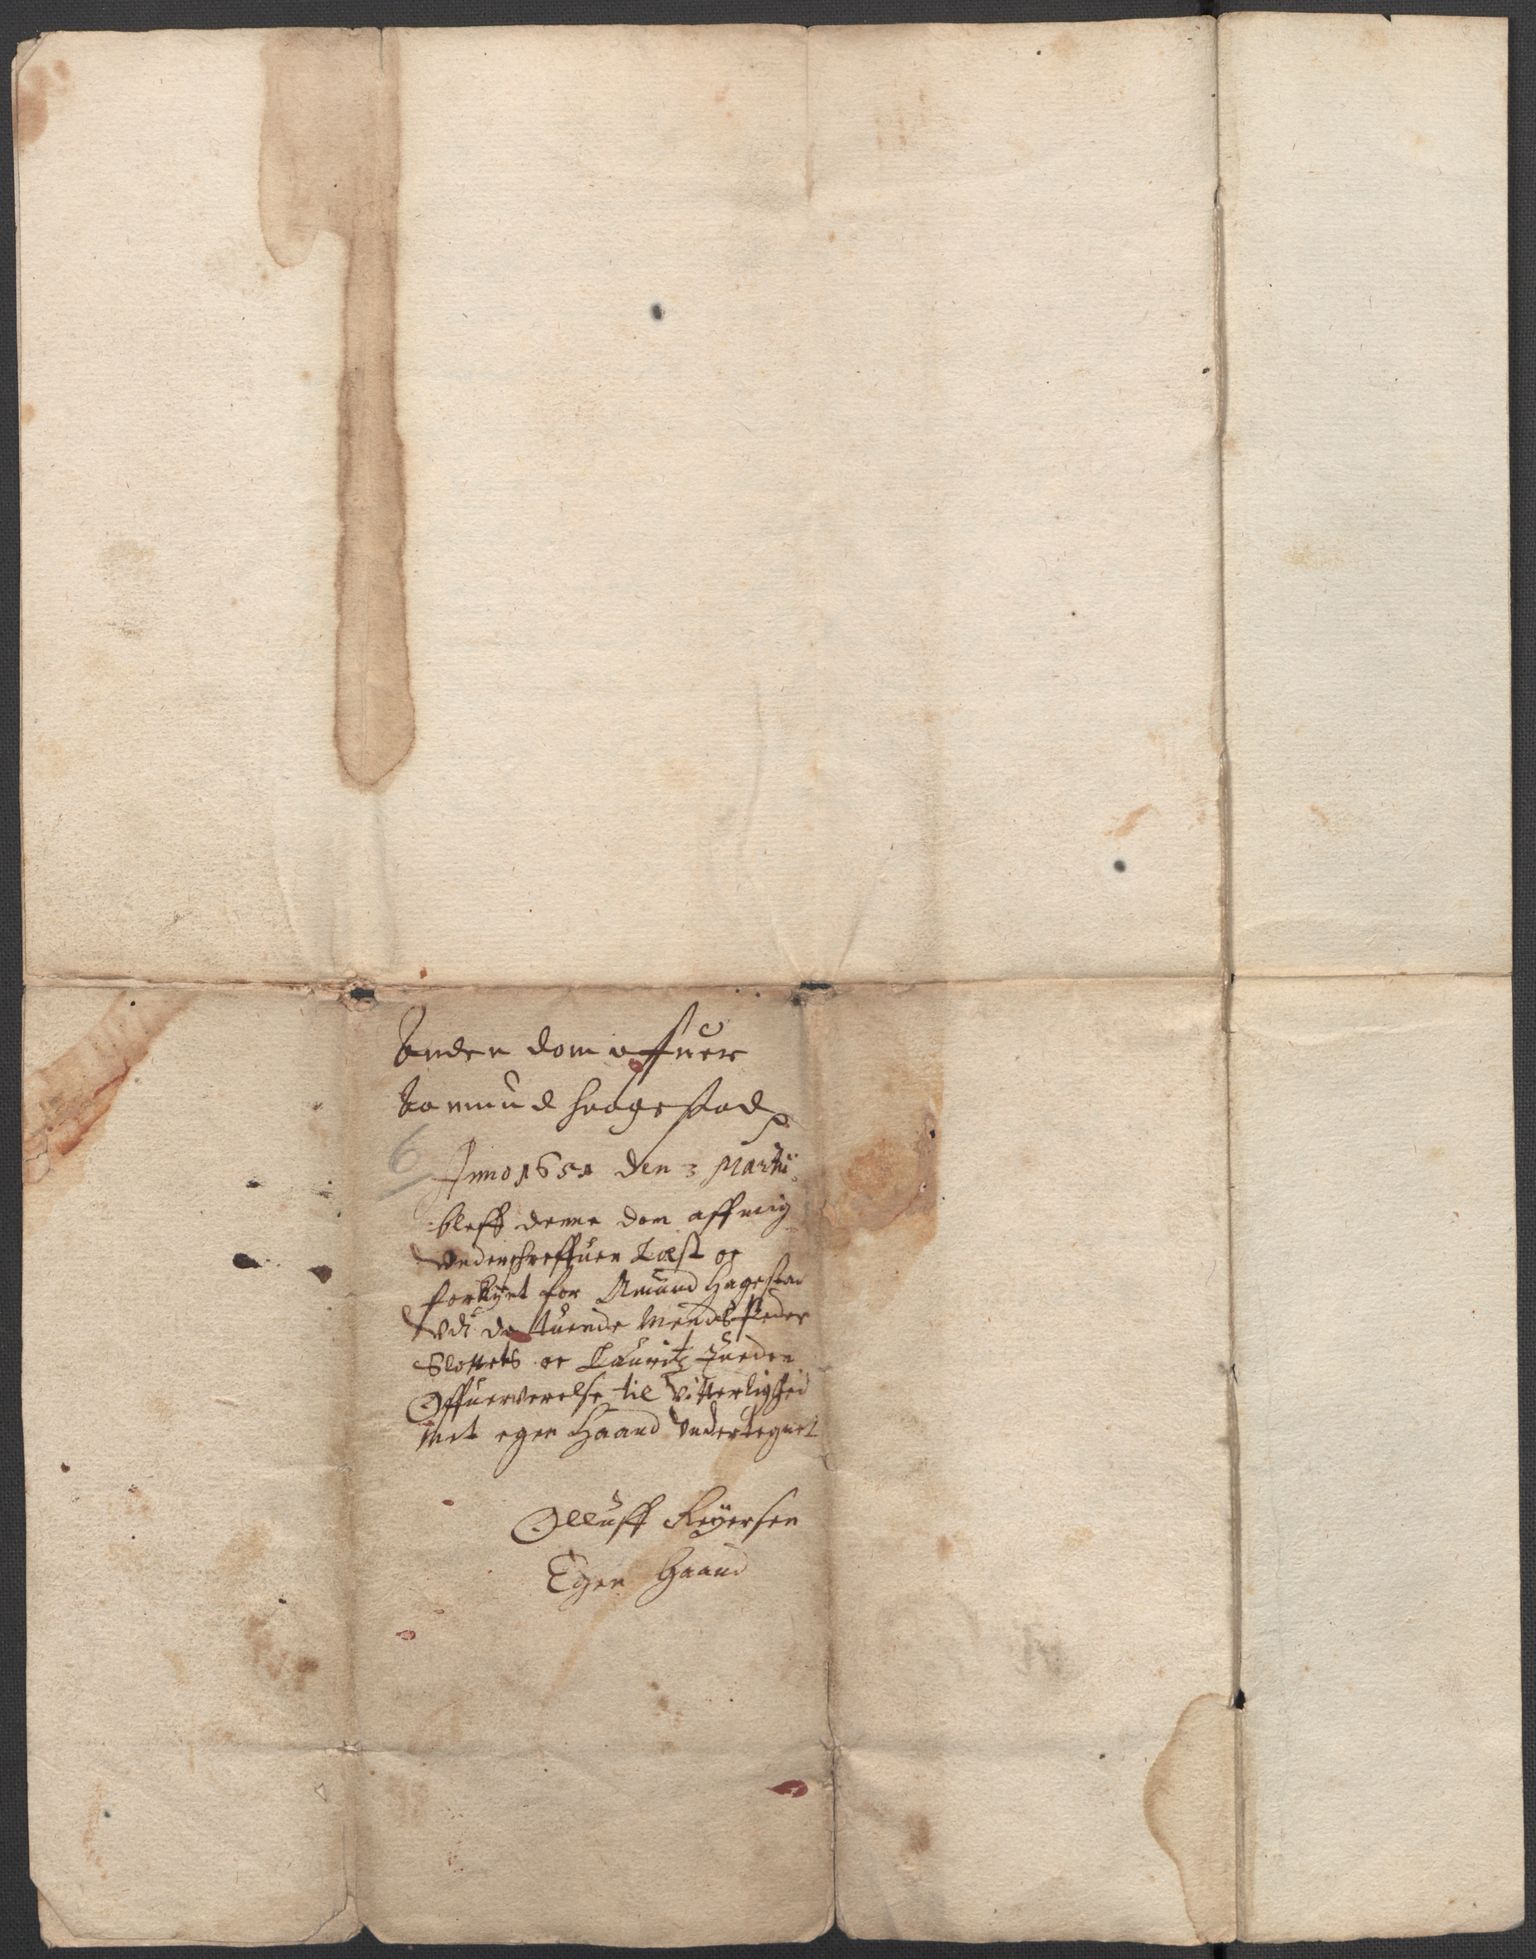 Anden dom offuer
Aamund Haagestad
6
Anno 1651 den 3 Martij
bleff denne dom aff mig
vnderschreffuen Læst oc
forkynt for Amund Hagestad
vdi de tuende Mends Peder
Slottets oc Lauritz Tueden
Offuerverelse til vitterlighed
met egen Haand vndertegnet
Olluff Reyersen
Egen Haand